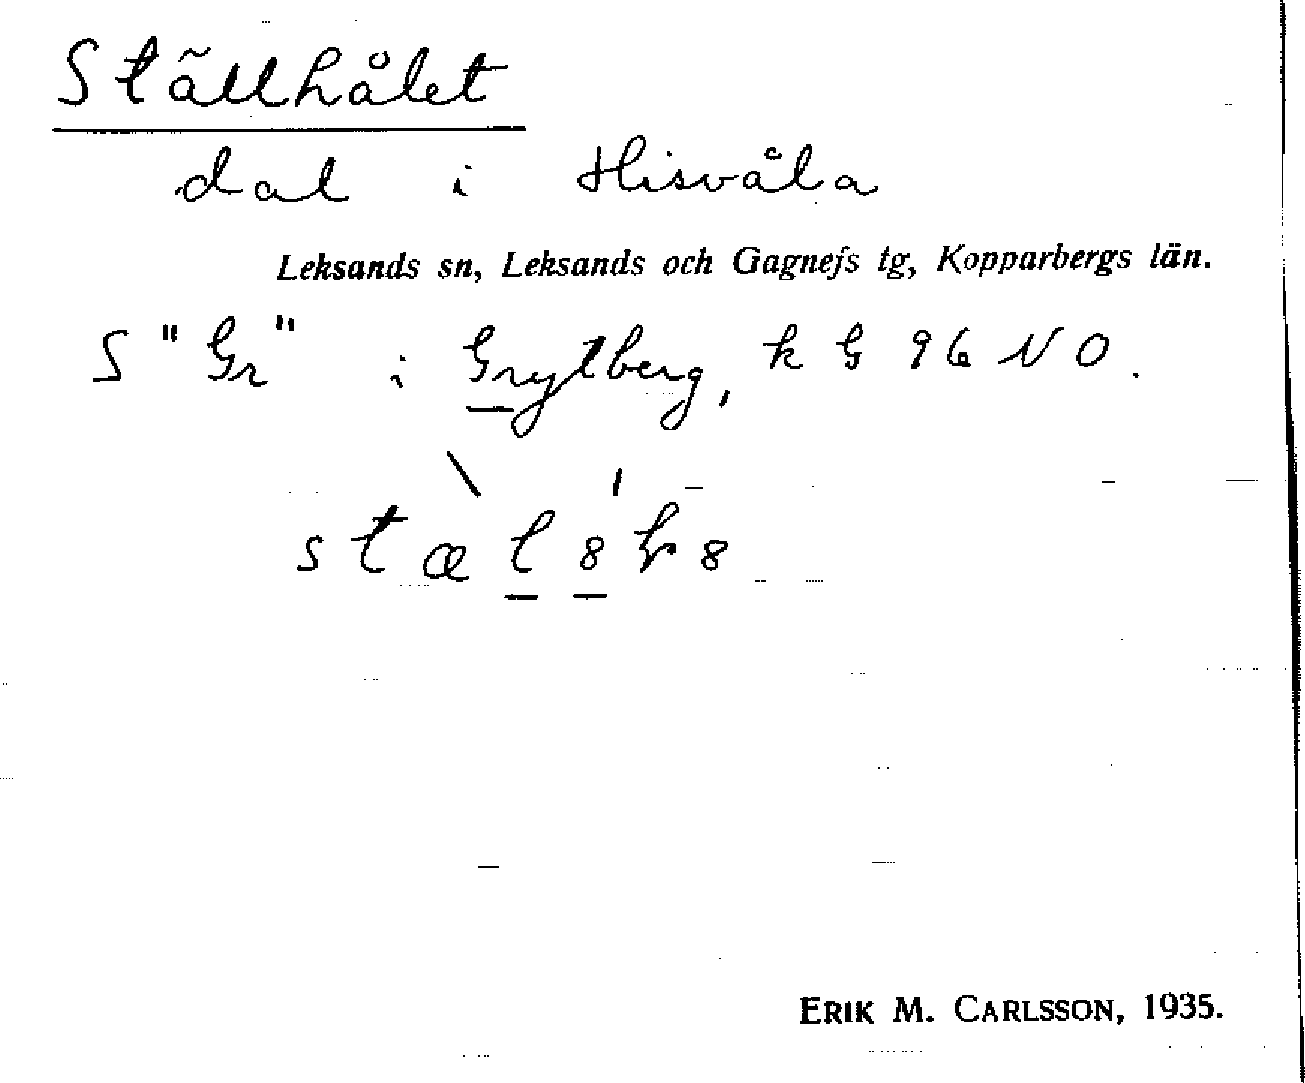 Ställhålet
dal i Hisvåla
Leksands sn, Leksands och Gagnefs tg, Kopparbergs län.
S "Gr" i Grytberg, k G 96 NO.
ERIK M. CARLSSON, 1935.